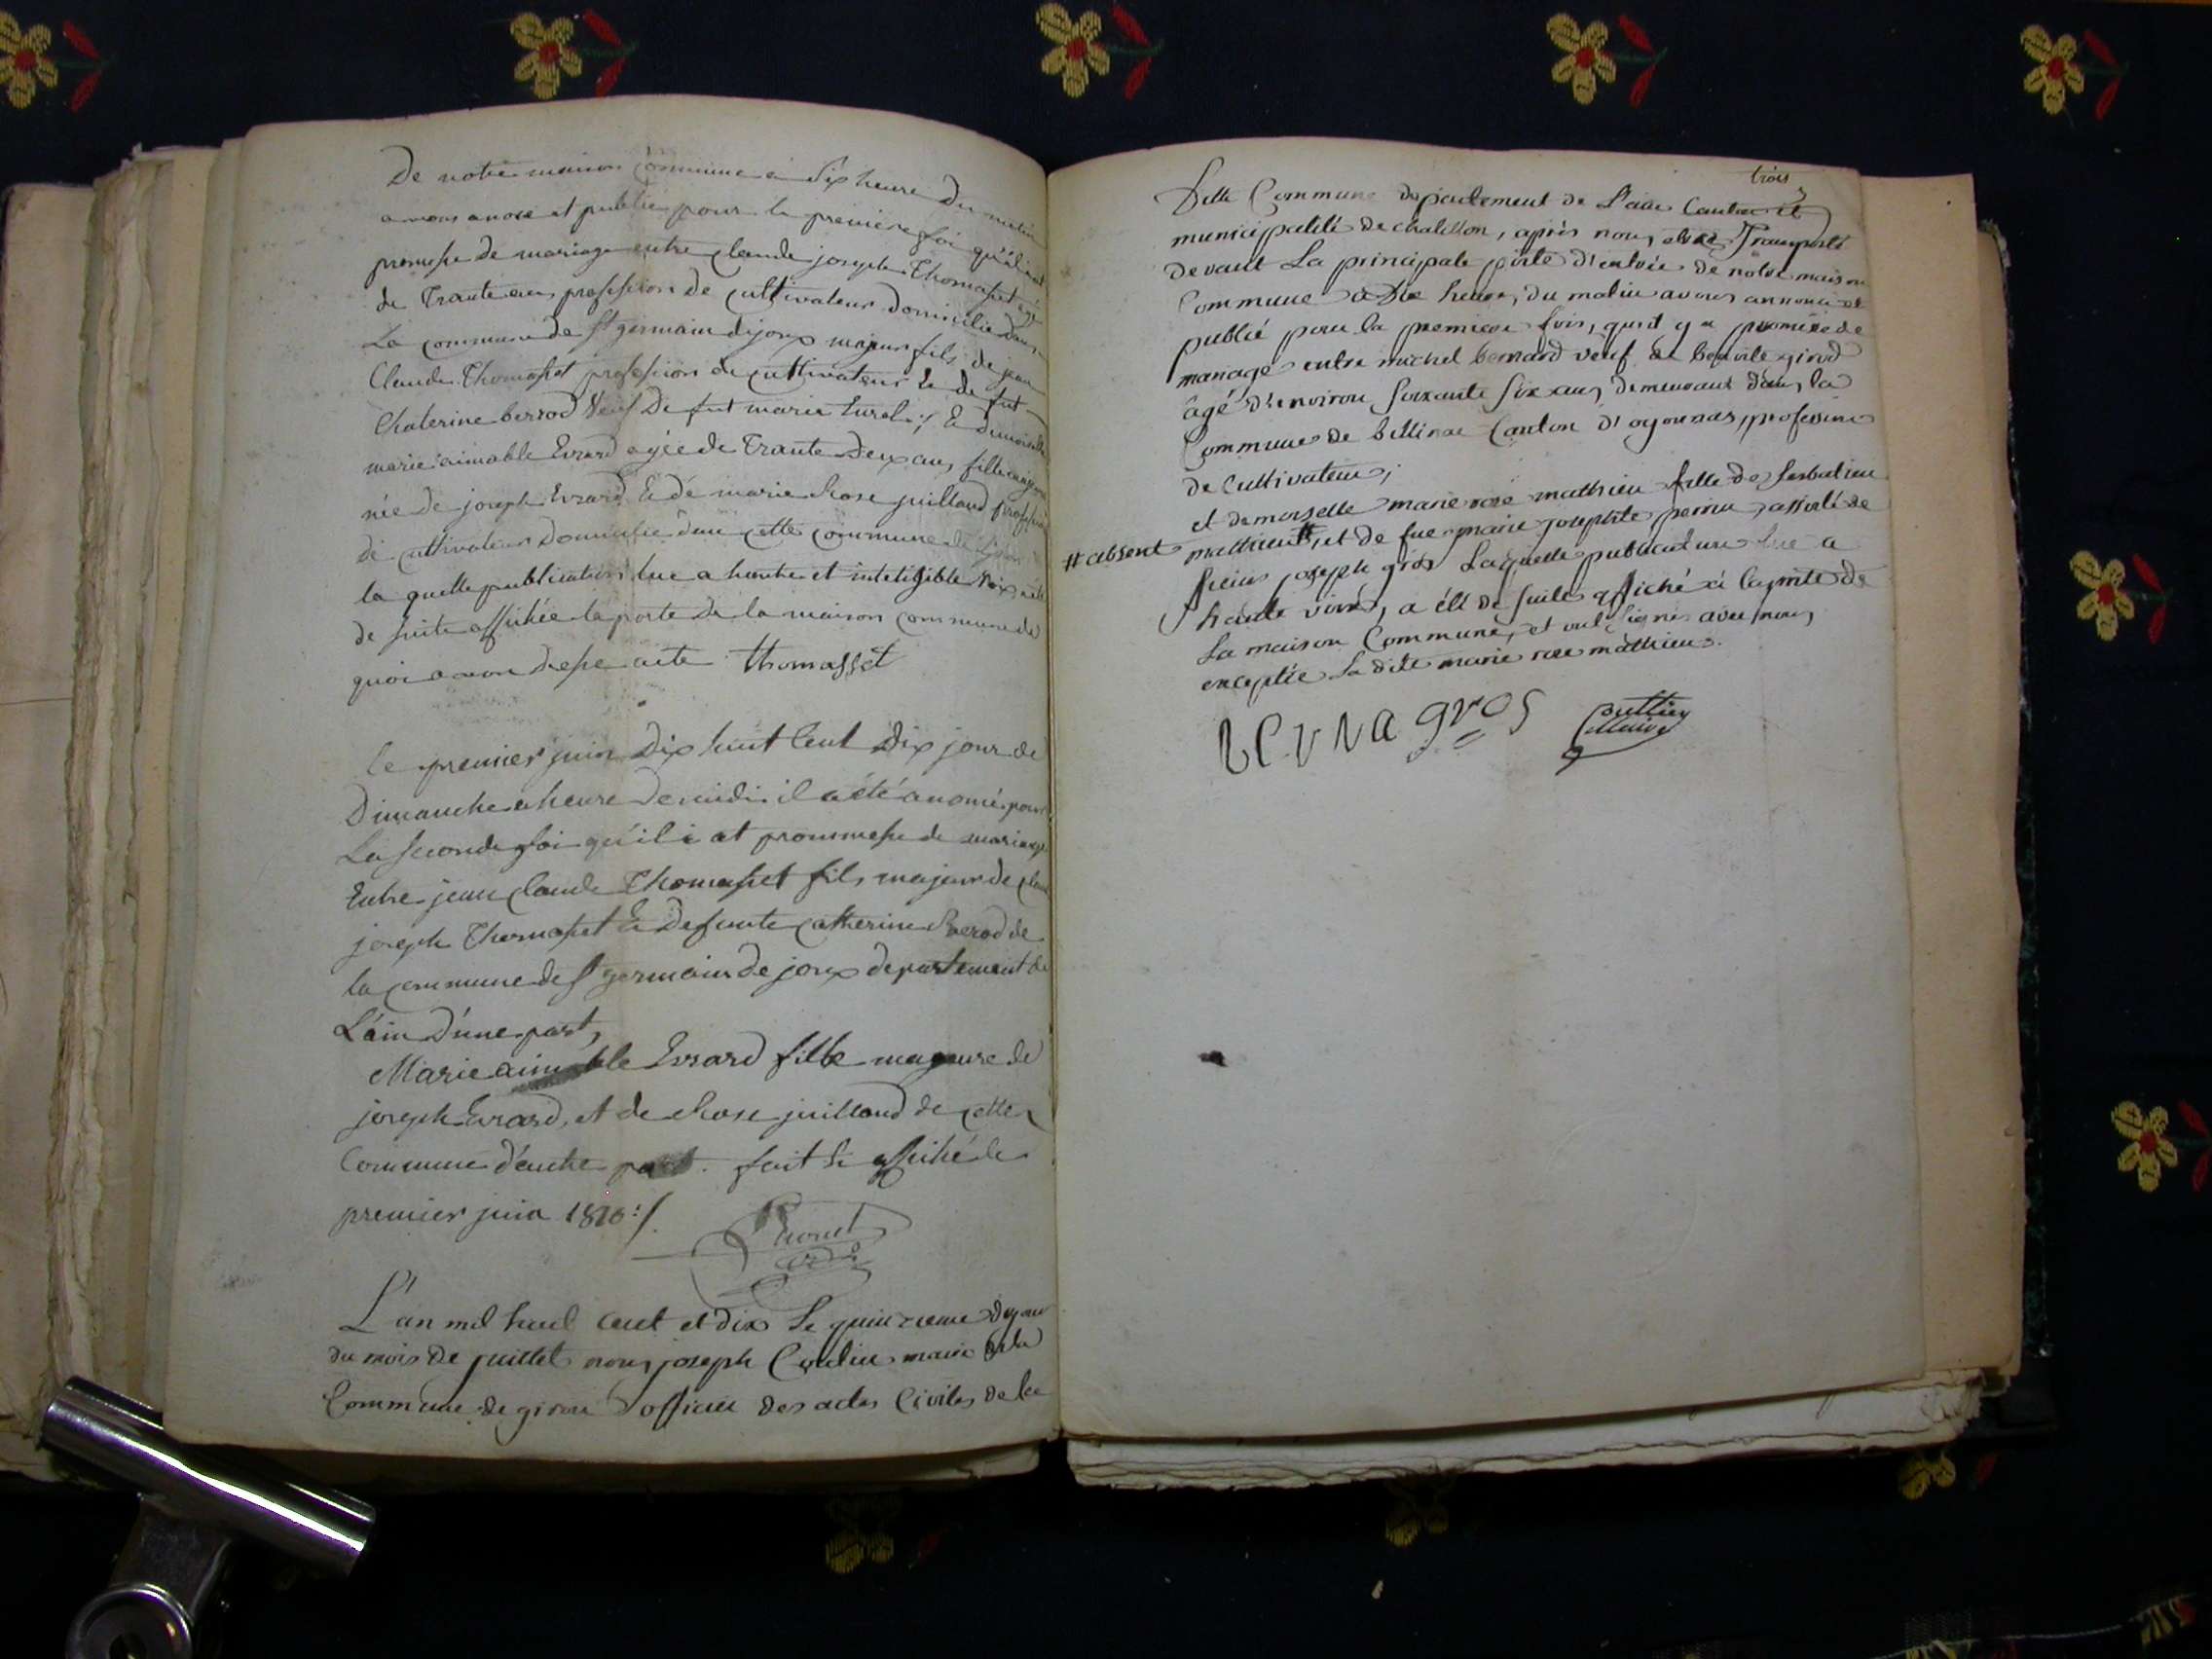 De notre maison commune à dix heure du matin
avons anoncé et publié pour la premiere foi qu'il i at
promesse de mariage entre claude joseph Thomasset agé
de Trante ans profession de cultivateur domicilié dans
La commune de St germain dejoux majeur fils de jean
Claude Thomasset profession de cultivateur Et de fut
Chaterine berrod Veuf De fut marie Eurel ;/ Et demoiselle
marie aimable Evrard agée de Trante Deux ans fille majeure
née de joseph Evrard Et de marie Rose juilland profession
de cultivateur Domicilié dans cette commune de
la quelle publication lue a haute et inteligible voix a été
de suite affichée la porte de la maison commune de
quoi avons dresse acte thomasset
le premier juin Dix huit Cent Dix jour de
Dimanche a heure de midi il a été anoncé pour
La seconde foi qu'il i at prommesse de mariage
Entre jean claude Thomasset fils majeur de claude
joseph Thomasset Et Defunte Catherine Berod de
la commune de St germain de joux departement de
L'ain D'une part,
Marie aimable Evrard fille mageure de
joseph Evrard, et de Rose juilland de cette
Commune d'autre part. fait Et affiché le
premier juin 1810 :/.
L'an mil huit cent et dix Le quinzieme du jour
du mois de juillet nous joseph Coutier maire de la
Commune de giron officier des actes Civiles de la
trois
3
Ditte Commune departement de L'ain Canton et
municipalité de chatillon, après nous etres Transporté
devant La principale porte d'entrée de notre maison
Commune a dix heures, du matin avons annoncé et
publié pour la premiere fois, qu'il y a promesse de
mariage entre michel bernard veuf de girod
âgé d'environ soixante six ans, demeurant dans la
Commune de bellinac Canton d'oyonnas, profession
de Cultivateur ;
et demoiselle marie rose mathieu fille de sesbatien
# absent mathieu #, et de fue marie josephte perrin, assisté de
joseph gros Laquelle publication lue a
haute voix, a été de suite affiché à la porte de
La maison Commune, et ont signés avec nous,
exceptée La dite marie rose mathieu.
gros Couttier
Maire